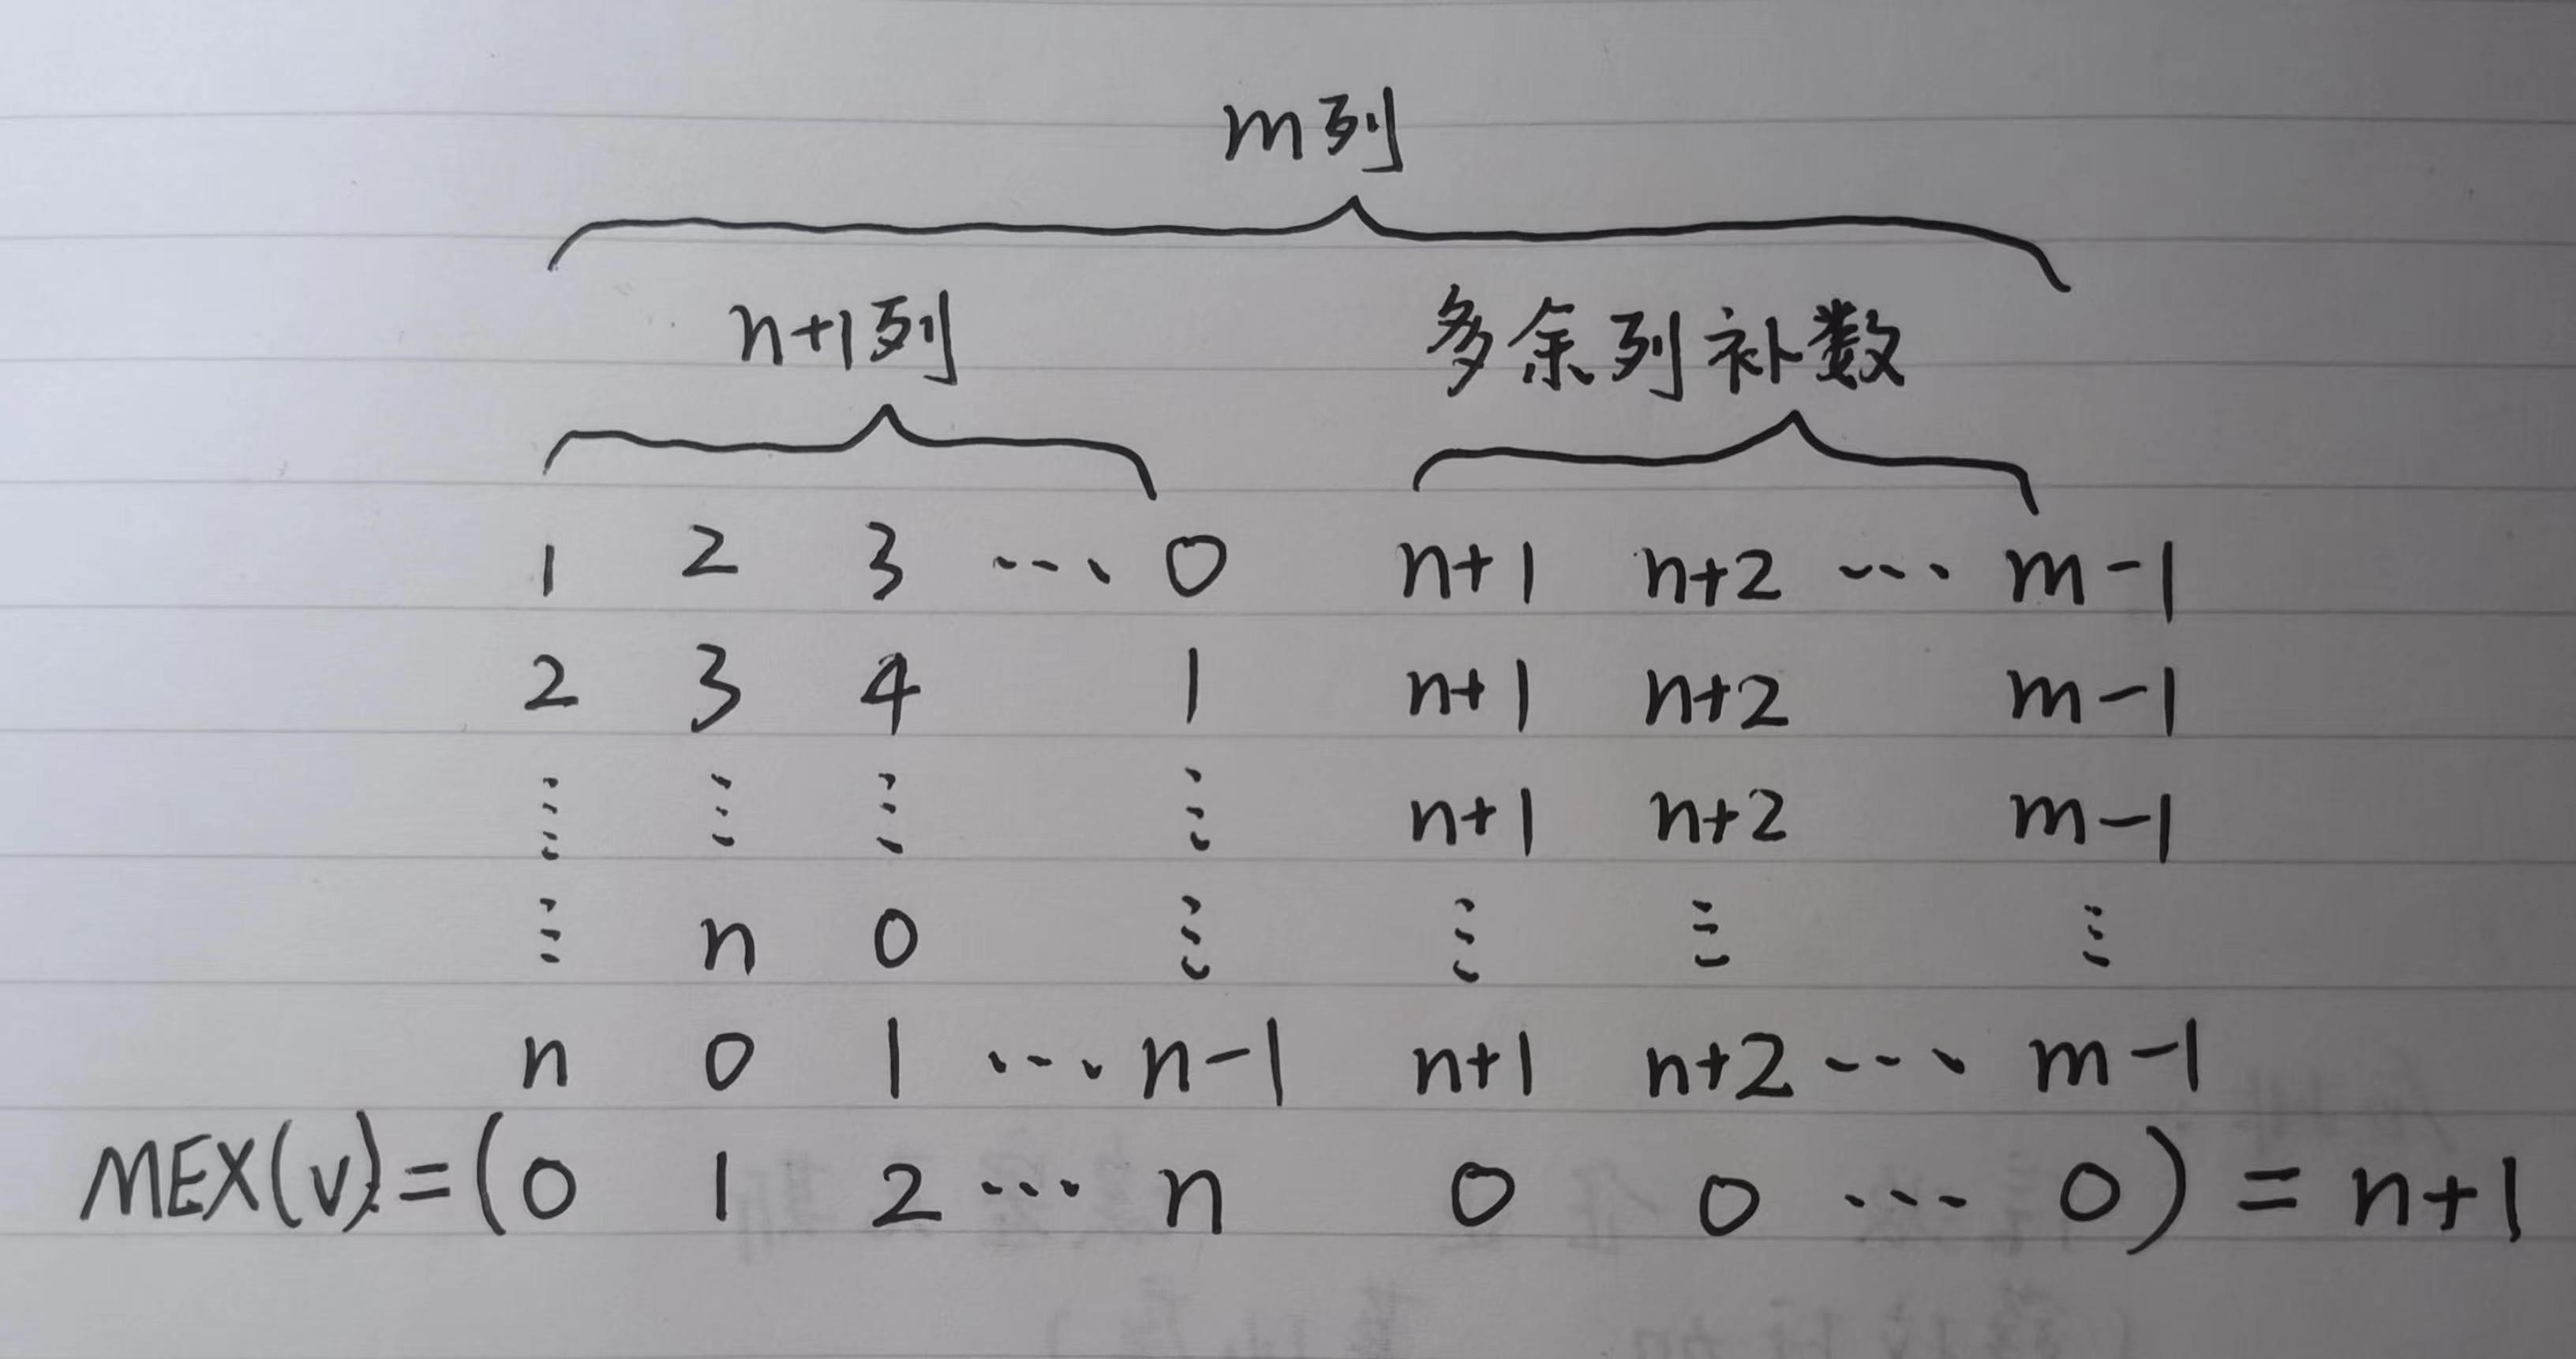 m列
n+1列 多余列补数
1 2 3 ... 0 n+1 n+2 ... m-1
2 3 4 1 n+1 n+2 m-1
⋮ ⋮ ⋮ ⋮ n+1 n+2 m-1
⋮ n 0 ⋮ ⋮ ⋮ ⋮
n 0 1 ... n-1 n+1 n+2 ... m-1
MEX(v)=(0 1 2 ... n 0 0 ... 0) = n+1